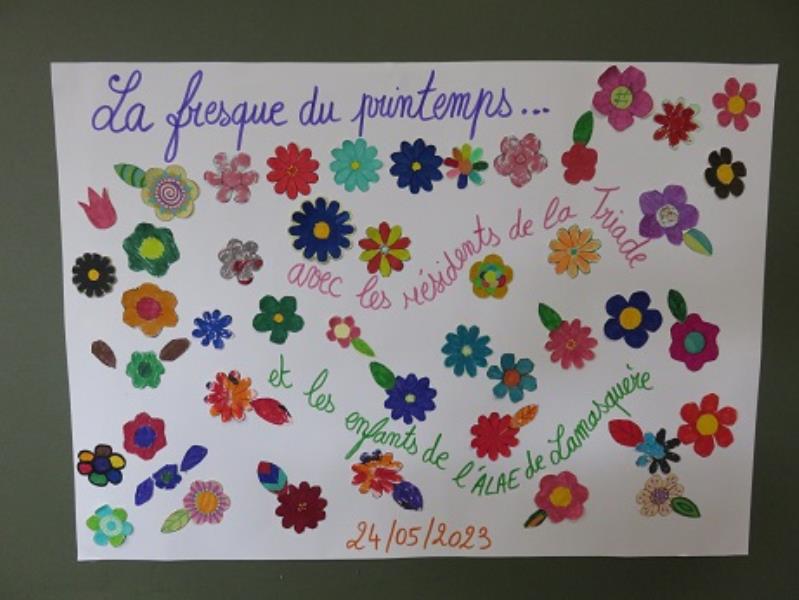 La fresque du printemps...
avec les résidents de la Triade
et les enfants de l'ALAE de Lamasquère
24/05/2023